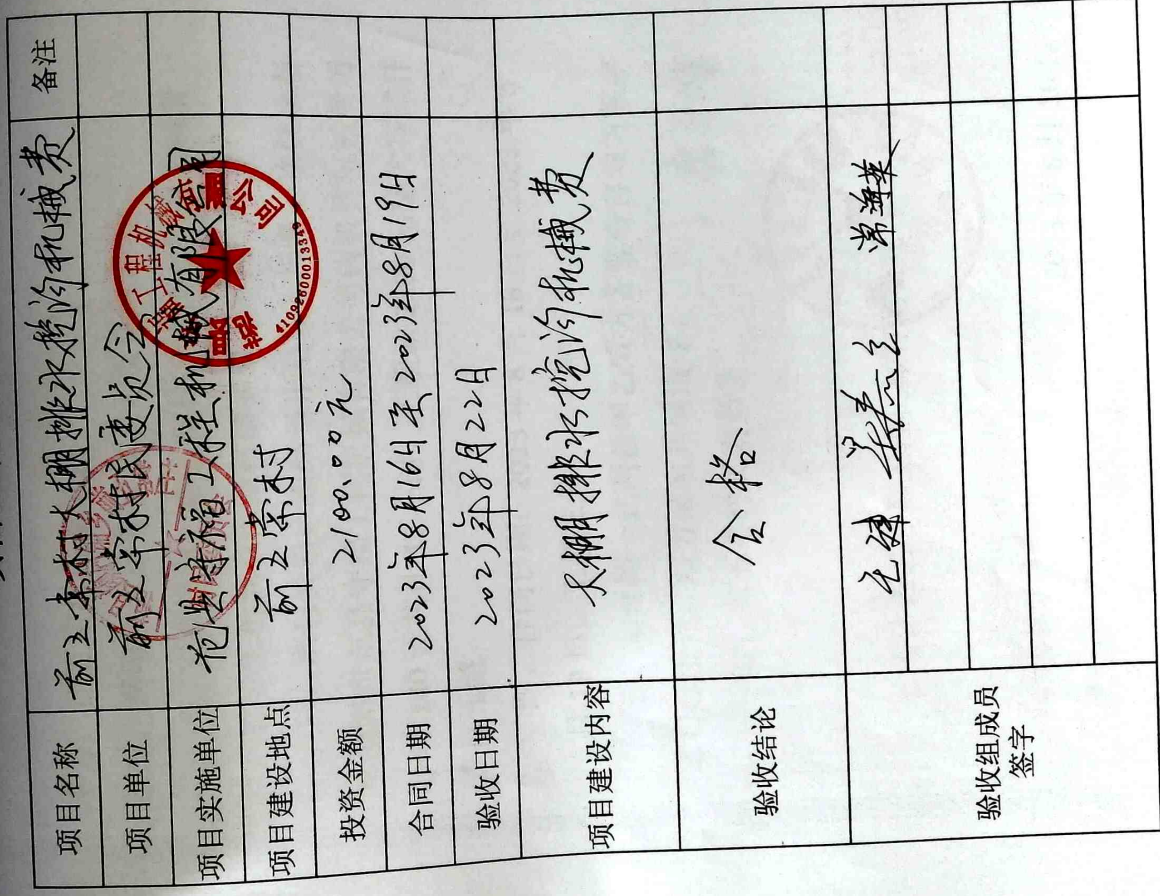 项目名称 前五常村大棚排水挖沟机械费 备注
项目单位 前五常村民委员会
项目实施单位 范县 福工程机械有限公司
项目建设地点 前五常村
投资金额 2100.00元
合同日期 2023年8月16日至2023年8月19日
验收日期 2023年8月22日
项目建设内容 大棚排水挖沟机械费
验收结论 合格
验收组成员
签字
工程机械 公司
4109260001334